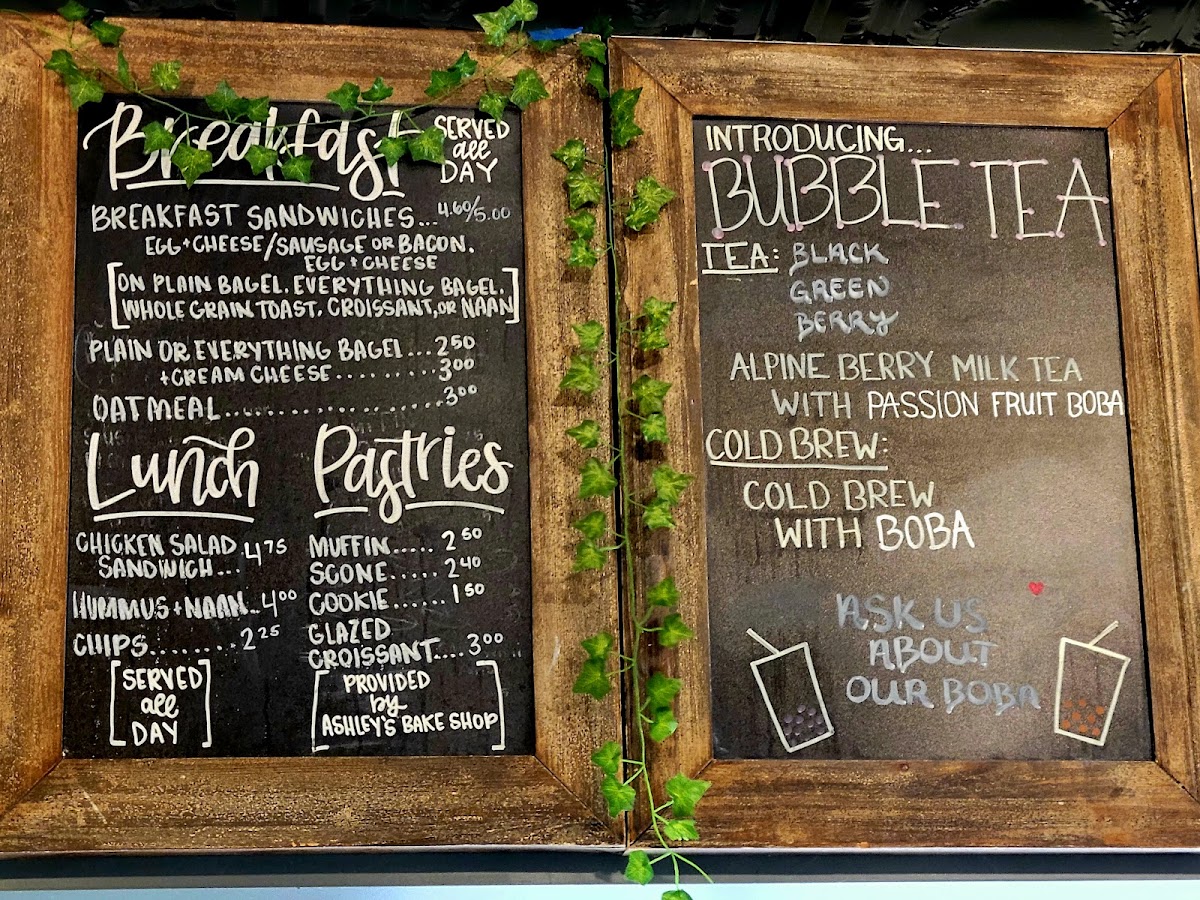 Breakfast SERVED all DAY
BREAKFAST SANDWICHES... 4.60/5.00
EGG + CHEESE/SAUSAGE OR BACON.
EGG + CHEESE
[ON PLAIN BAGEL. EVERYTHING BAGEL.
WHOLE GRAIN TOAST. CROISSANT, OR NAAN]
PLAIN OR EVERYTHING BAGEL... 2 50
+ CREAM CHEESE......... 3 00
OATMEAL...................... 3 00
Lunch
CHICKEN SALAD
SANDWICH... 4 75
HUMMUS + NAAN... 4 00
CHIPS........ 2 25
[SERVED
all
DAY]
Pastries
MUFFIN..... 2 50
SCONE..... 2 40
COOKIE...... 1 50
GLAZED
CROISSANT.... 3 00
[PROVIDED
by
ASHLEY'S BAKE SHOP]
INTRODUCING...
BUBBLE TEA
TEA: BLACK
GREEN
BERRY
ALPINE BERRY MILK TEA
WITH PASSION FRUIT BOBA
COLD BREW:
COLD BREW
WITH BOBA
ASK US
ABOUT
OUR BOBA